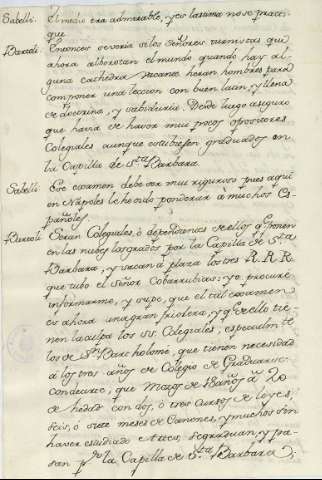 Sabelli. El medio era admirable, y es lastima no se practi-
que
Bartoli. Entonces se veria si los Señores turnistas que
ahora alborotan el mundo quando hay al-
guna cathedra vacante heran hombres para
componer una leccion con buen latin, y llena
de doctrina, y sabiduria. Desde luego aseguro
que havia de haver muy pocos opositores
Colegiales aunque estubiesen graduados en
la Capilla de Sta. Barbara
Sabelli. Ese examen debe ser muy riguroso pues aqui
en Napoles le he oido ponderar à muchos Es-
pañoles.
Bartoli. Seran Colegiales, ò dependientes de ellos q. ponen
en las nubes los grados por la Capilla de Sta.
Barbara, y sacan à plaza los tres R.R.R.
que tubo el Señor Cobarrubias: yo procuré
informarme, y supe, que el tal examen
es ahora una gran friolera, y q. de ello tie-
nen la culpa los SS. Colegiales, especialm.te
los de Sn. Bartholomè, que tienen necesidad
à los tres años de Colegio de Graduarse.
conducese, que Mozos de 18 años à 20
de hedad con dos, ò tres cursos de leyes,
seis, ò siete meses de Canones, y muchos sin
haver estudiado Artes, se graduan, y pa-
san p. la Capilla de Sta. Barbara;